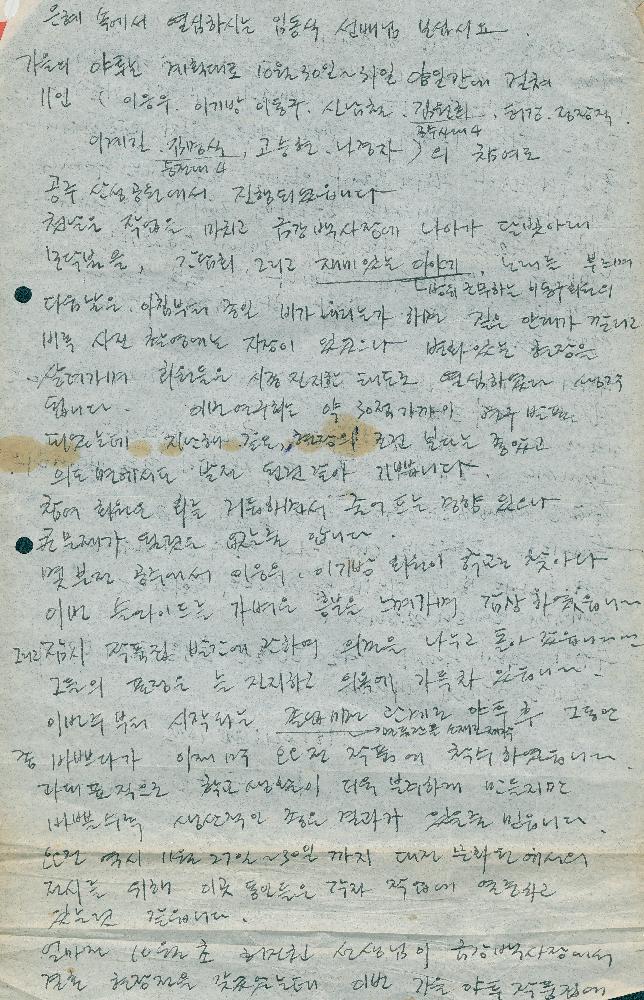 은혜 속에서 열심하시는 임동식 선배님 보십시요.
가을의 야투는 계획대로 10월 30일~31일 양일간에 걸쳐
11인 ( 이응우. 이기방 이동구. 신남철. 김원희. 허강. 정장직
공주사대 4
이계길. 김명식, 고승현. 나경자 ) 의 참여로
공주 산성공원에서 진행되었읍니다
첫날은 작업을 마치고 금강백사장에 나아가 달빛아래
모닥불을, 간담회 그리고 재미있는 이야기, 노래를 부르며
근무하는 이동구회원의
다음날은 아침부터 종일 비가 내리는가 하면 짙은 안개가 깔리고
비록 사진 촬영에는 지장이 있었으나 변화있는 현장을
살펴가며 회원들은 시종 진지한 태도로 열심하였다 생각
됩니다. 이번 연구회는 약 30점 가까이 연구 발표
되었는데 지난해 겨울, 현장의 조건 보다는 좋았고
의도면에서도 발전 된것 같아 기쁩니다.
참여 회원은 회를 거듭하면서 줄어드는 경향 있으나
큰 문제가 될것은 없는줄 압니다.
몇일전 공주에서 이응우. 이기방 회원이 학교로 찾아와
이번 슬라이드를 가벼운 흥분을 느껴가며 감상 하였읍니다
그리고 잠시 작품집 발간에 관하여 의견을 나누고 돌아 갔읍니다
그들의 표정은 늘 진지하고 의욕에 가득차 있읍니다.
이번주 부터 시작되는 졸업미전 관계로 야투 후 그동안
좀 바쁘다가 이제 마악 요전 작품에 착수하였읍니다.
과대표직으로 학교생활이 더욱 분주하게 만드지만
바쁠수록 생산적인 좋은 결과가 있을줄 믿읍니다.
요전 역시 11월 27일~30일 까지 대전 문화원에서의
전시를 위해 이곳 동인들은 각자 작업에 열중하고
있는것 같읍니다.
얼마전 10월 초 선생님이 금강백사장에서
결혼 현장전을 갖었는데 이번 가을 야투 작품집에